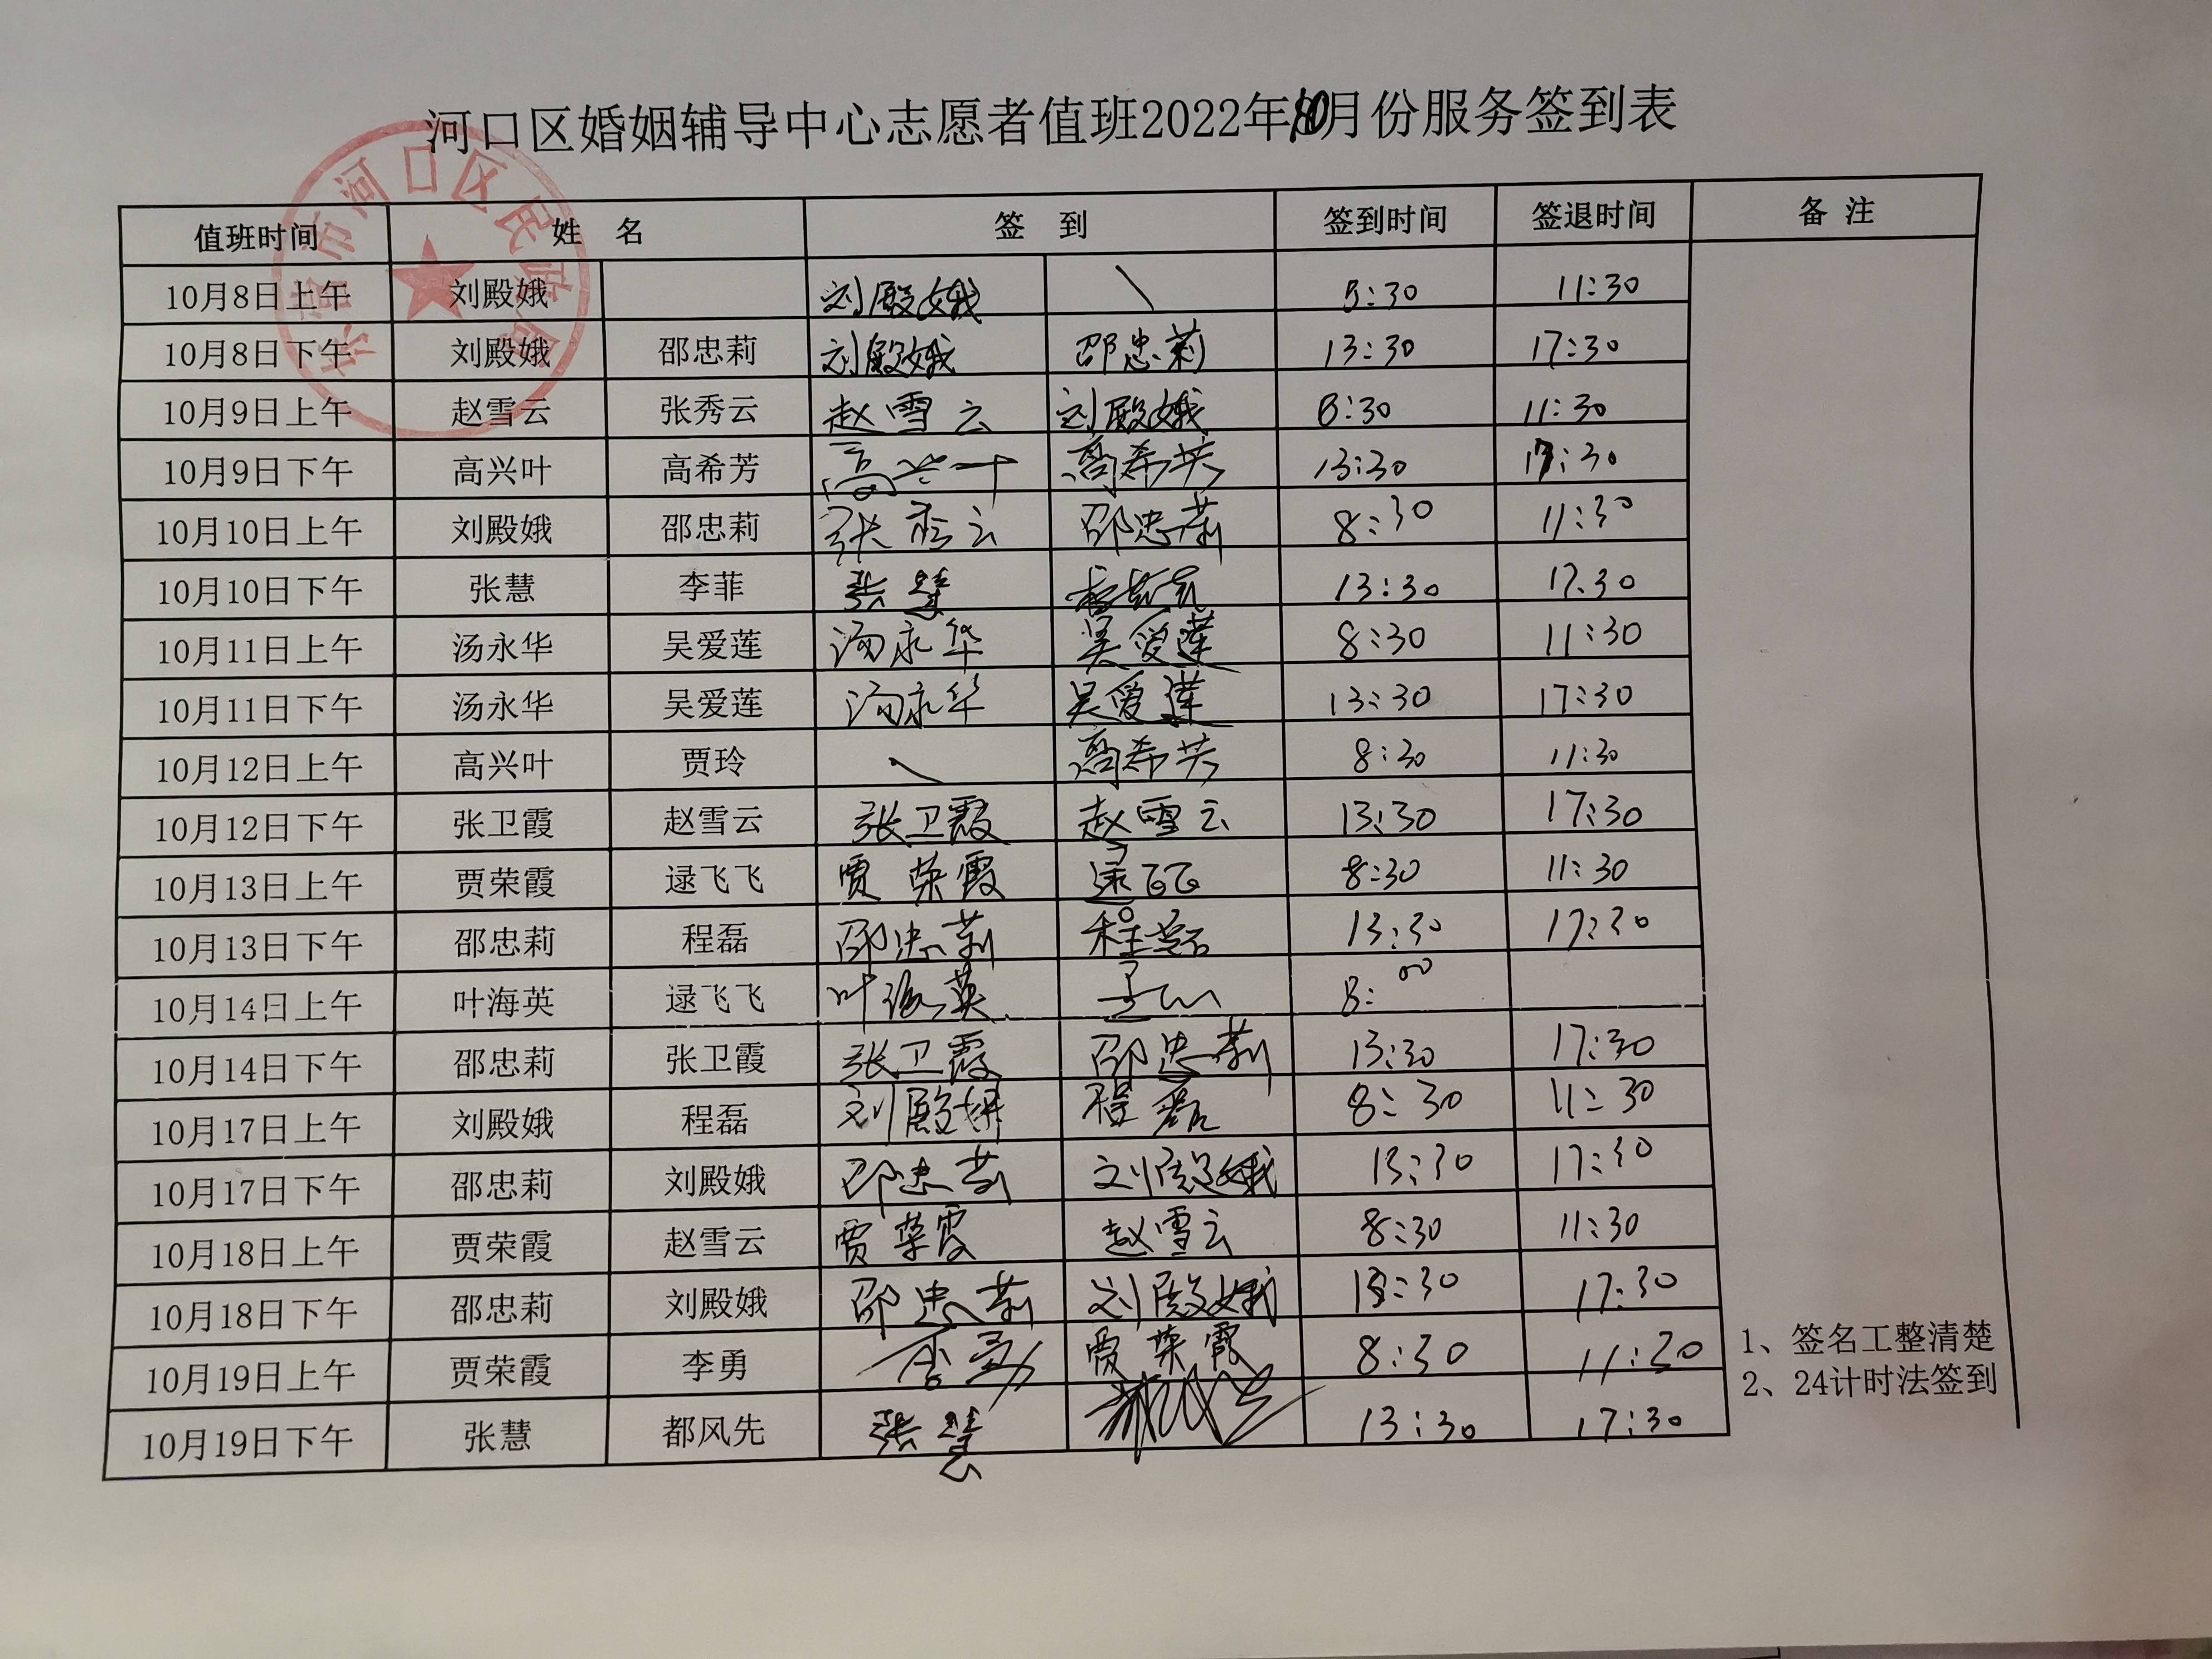 河口区婚姻辅导中心志愿者值班2022年10月份服务签到表
东营市河口区民政局
值班时间 姓 名 签 到 签到时间 签退时间 备 注
10月8日上午 刘殿娥 刘殿娥 \ 8:30 11:30
10月8日下午 刘殿娥 邵忠莉 刘殿娥 邵忠莉 13:30 17:30
10月9日上午 赵雪云 张秀云 赵雪云 刘殿娥 8:30 11:30
10月9日下午 高兴叶 高希芳 高兴叶 高希芳 13:30 17:30
10月10日上午 刘殿娥 邵忠莉 张秀云 邵忠莉 8:30 11:30
10月10日下午 张慧 李菲 张慧 13:30 17:30
10月11日上午 汤永华 吴爱莲 汤永华 吴爱莲 8:30 11:30
10月11日下午 汤永华 吴爱莲 汤永华 吴爱莲 13:30 17:30
10月12日上午 高兴叶 贾玲 \ 高希芳 8:30 11:30
10月12日下午 张卫霞 赵雪云 张卫霞 赵雪云 13:30 17:30
10月13日上午 贾荣霞 逯飞飞 贾荣霞 逯飞飞 8:30 11:30
10月13日下午 邵忠莉 程磊 邵忠莉 程磊 13:30 17:30
10月14日上午 叶海英 逯飞飞 叶海英 8:00
10月14日下午 邵忠莉 张卫霞 张卫霞 邵忠莉 13:30 17:30
10月17日上午 刘殿娥 程磊 刘殿娥 程磊 8:30 11:30
10月17日下午 邵忠莉 刘殿娥 邵忠莉 刘殿娥 13:30 17:30
10月18日上午 贾荣霞 赵雪云 贾荣霞 赵雪云 8:30 11:30
10月18日下午 邵忠莉 刘殿娥 邵忠莉 刘殿娥 13:30 17:30
10月19日上午 贾荣霞 李勇 李勇 贾荣霞 8:30 11:30
10月19日下午 张慧 都风先 张慧 13:30 17:30
1、签名工整清楚
2、24计时法签到